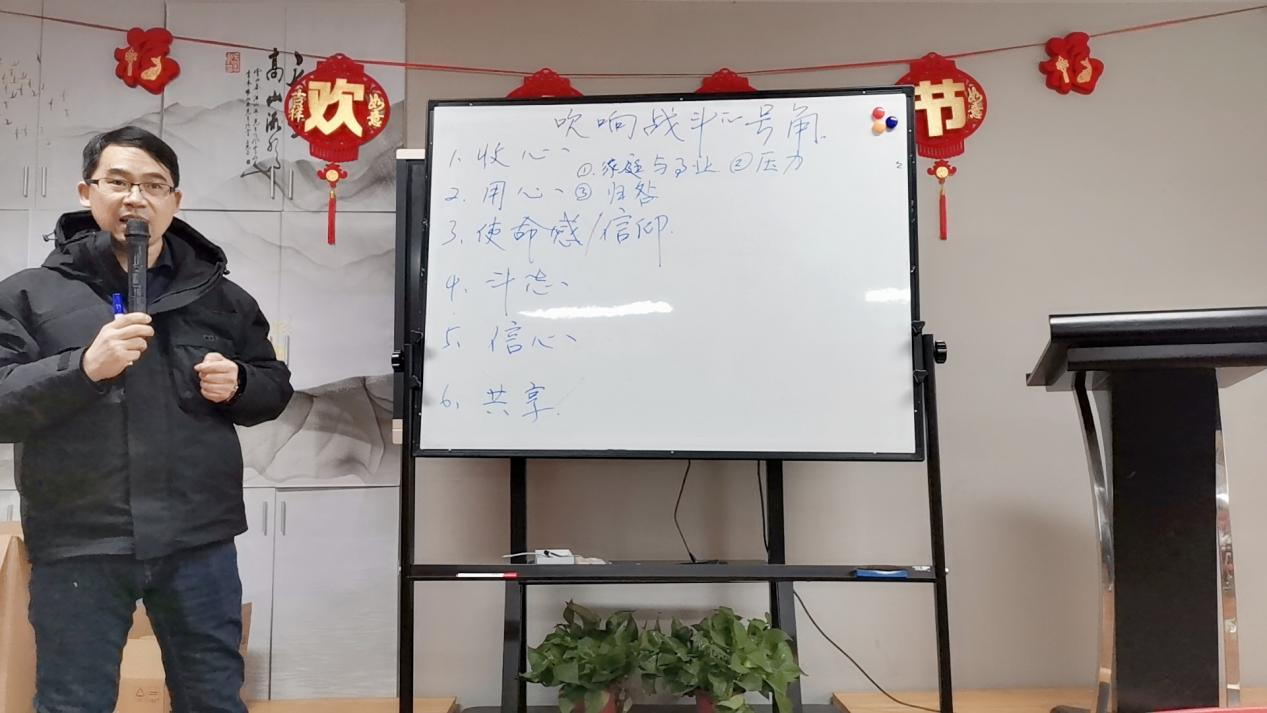 福
欢
吉祥
如意
节
如意
福
高山流水
吹响战斗的号角
1. 收心、
①家庭与事业 ②压力
2. 用心、③归咎
3. 使命感/信仰.
4. 斗志、
5. 信心、
6. 共享.